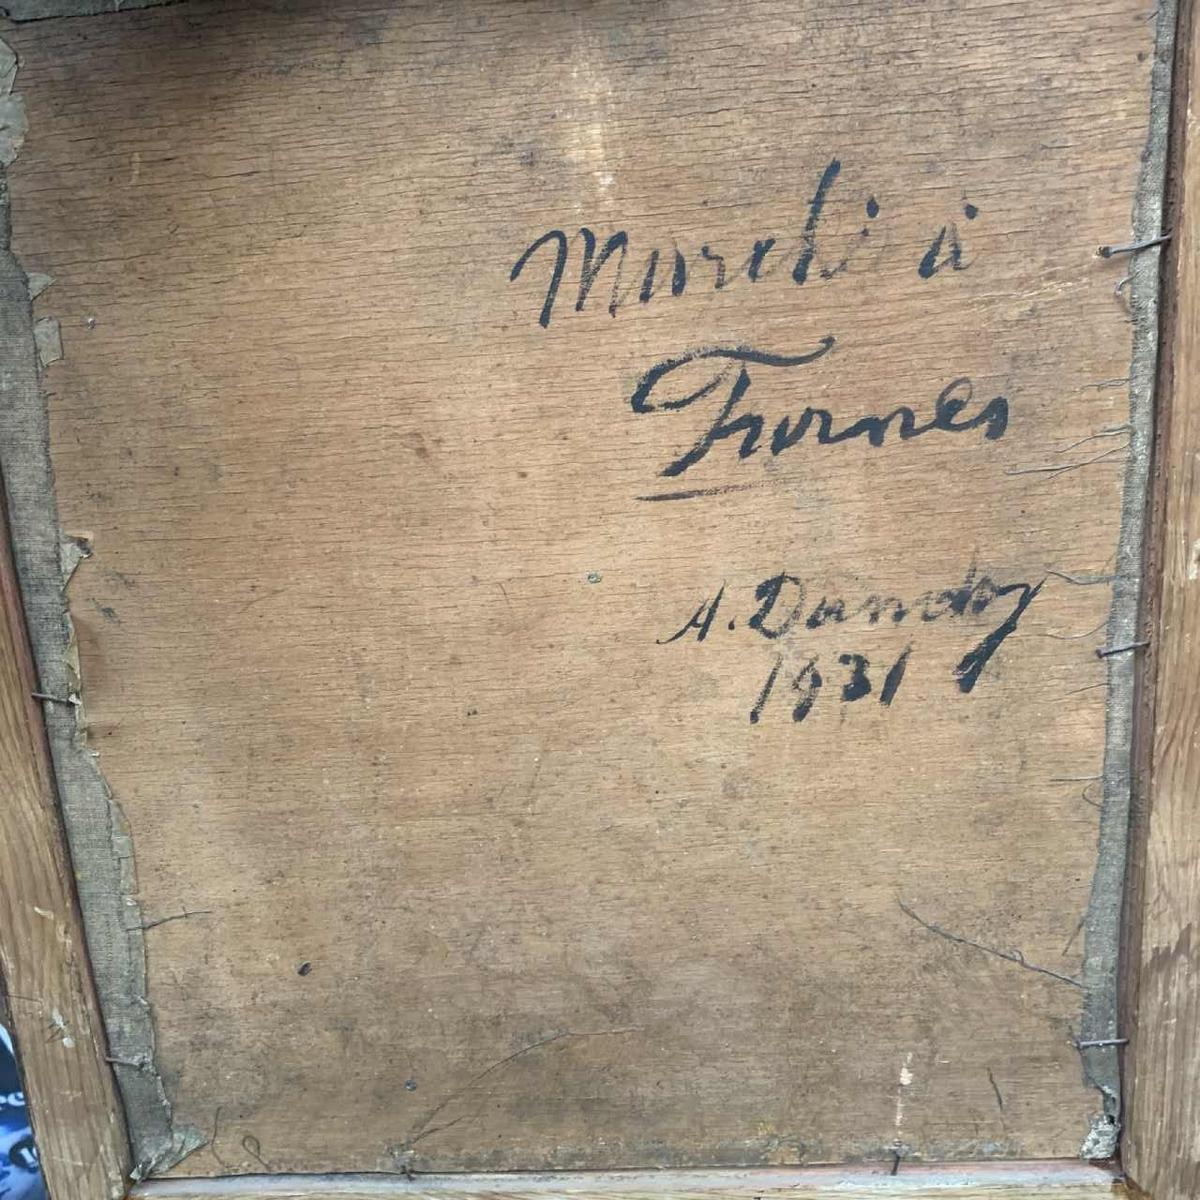 Marché à
Furnes
A. Dandoy
1931